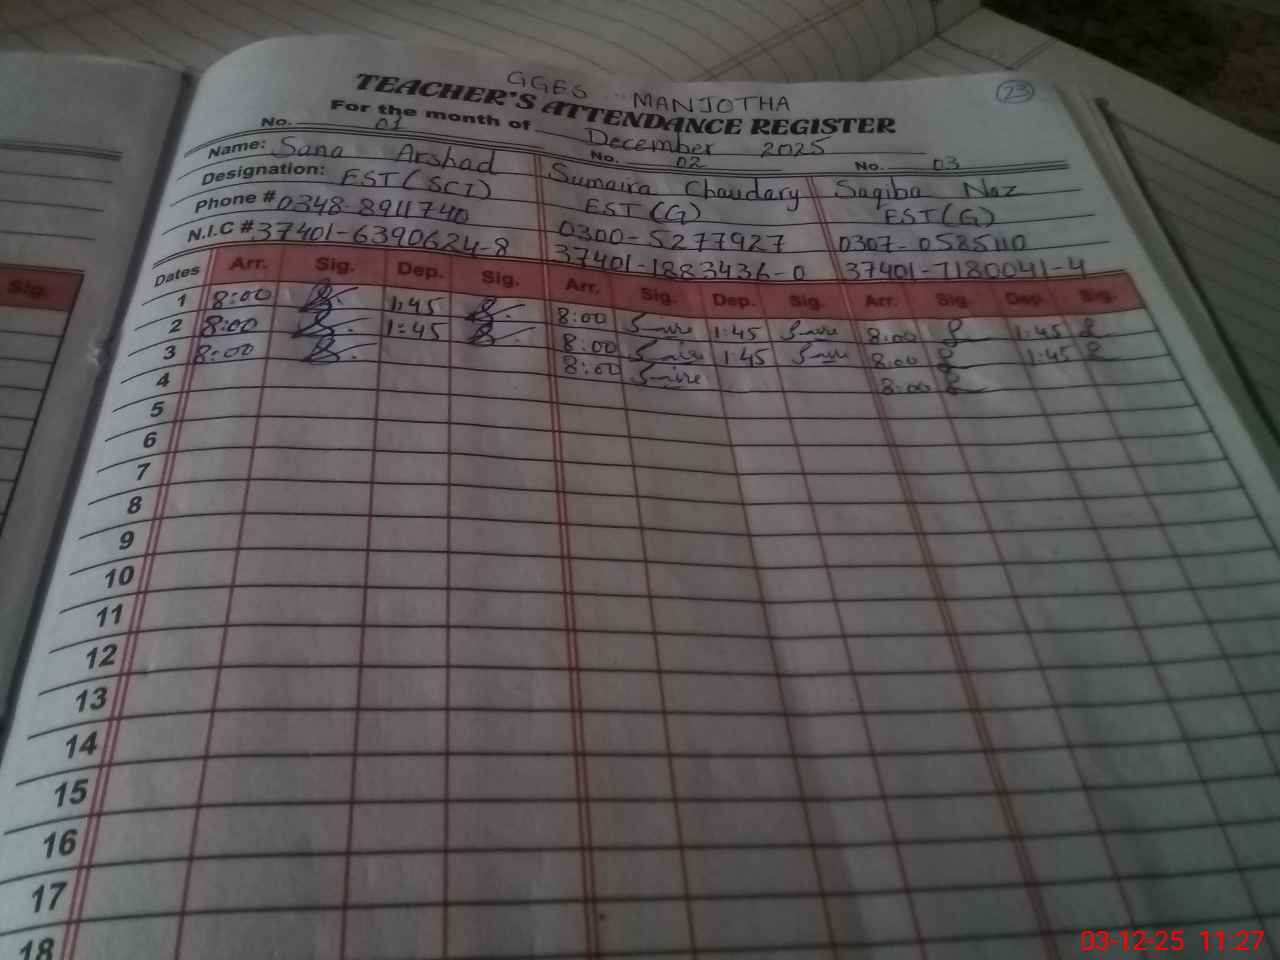 GGES MANJOTHA
23
TEACHER'S ATTENDANCE REGISTER
For the month of December 2025
No. 01 No. 02 No. 03
Name: Sana Arshad Sumaira Chaudary Saqiba Naz
Designation: EST(SCI) EST(G) EST(G)
Phone # 0348-8911740 0300-5277927 0307-0585110
N.I.C # 37401-6390624-8 37401-1883436-0 37401-7180041-4
Dates Arr. Sig. Dep. Sig. Arr. Sig. Dep. Sig. Arr. Sig. Dep. Sig.
1 8:00 1:45 8:00 1:45 8:00 1:45
2 8:00 1:45 8:00 1:45 8:00 1:45
3 8:00 8:00 8:00
4
5
6
7
8
9
10
11
12
13
14
15
16
17
18
Sig.
03-12-25 11:27